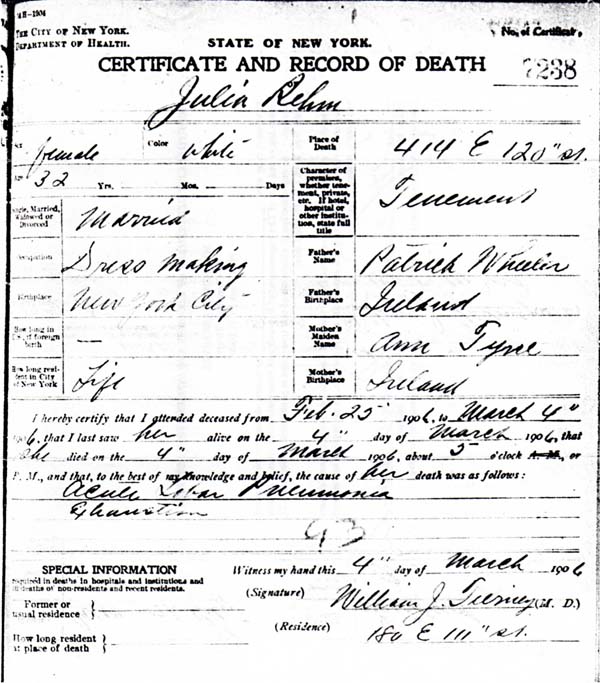 MH-1904
THE CITY OF NEW YORK.
DEPARTMENT OF HEALTH.
STATE OF NEW YORK.
No. of Certificate,
CERTIFICATE AND RECORD OF DEATH
7238
Julia Rehm
Sex female Color white Place of Death 414 E 120" st.
Age 32 Yrs. Mos. Days Character of premises, whether tenement, private, etc. If hotel, hospital or other institution, state full title Tenement
Single, Married, Widowed or Divorced Married
Occupation Dress making Father's Name Patrick Wheeler
Birthplace New York City Father's Birthplace Ireland
How long in U.S., if foreign birth — Mother's Maiden Name Ann
How long resident in City of New York Life Mother's Birthplace Ireland
I hereby certify that I attended deceased from Feb. 25 1906, to March 4"
1906, that I last saw her alive on the 4" day of March 1906, that
she died on the 4" day of March 1906, about 5 o'clock A. M., or
P. M., and that, to the best of my knowledge and belief, the cause of her death was as follows:
Acute Lobar Pneumonia
Exhaustion
93
SPECIAL INFORMATION
required in deaths in hospitals and institutions and
in deaths of non-residents and recent residents.
Witness my hand this 4" day of March 1906
Former or usual residence
(Signature) William J. Tierney (M. D.)
How long resident at place of death
(Residence) 180 E 111" st.